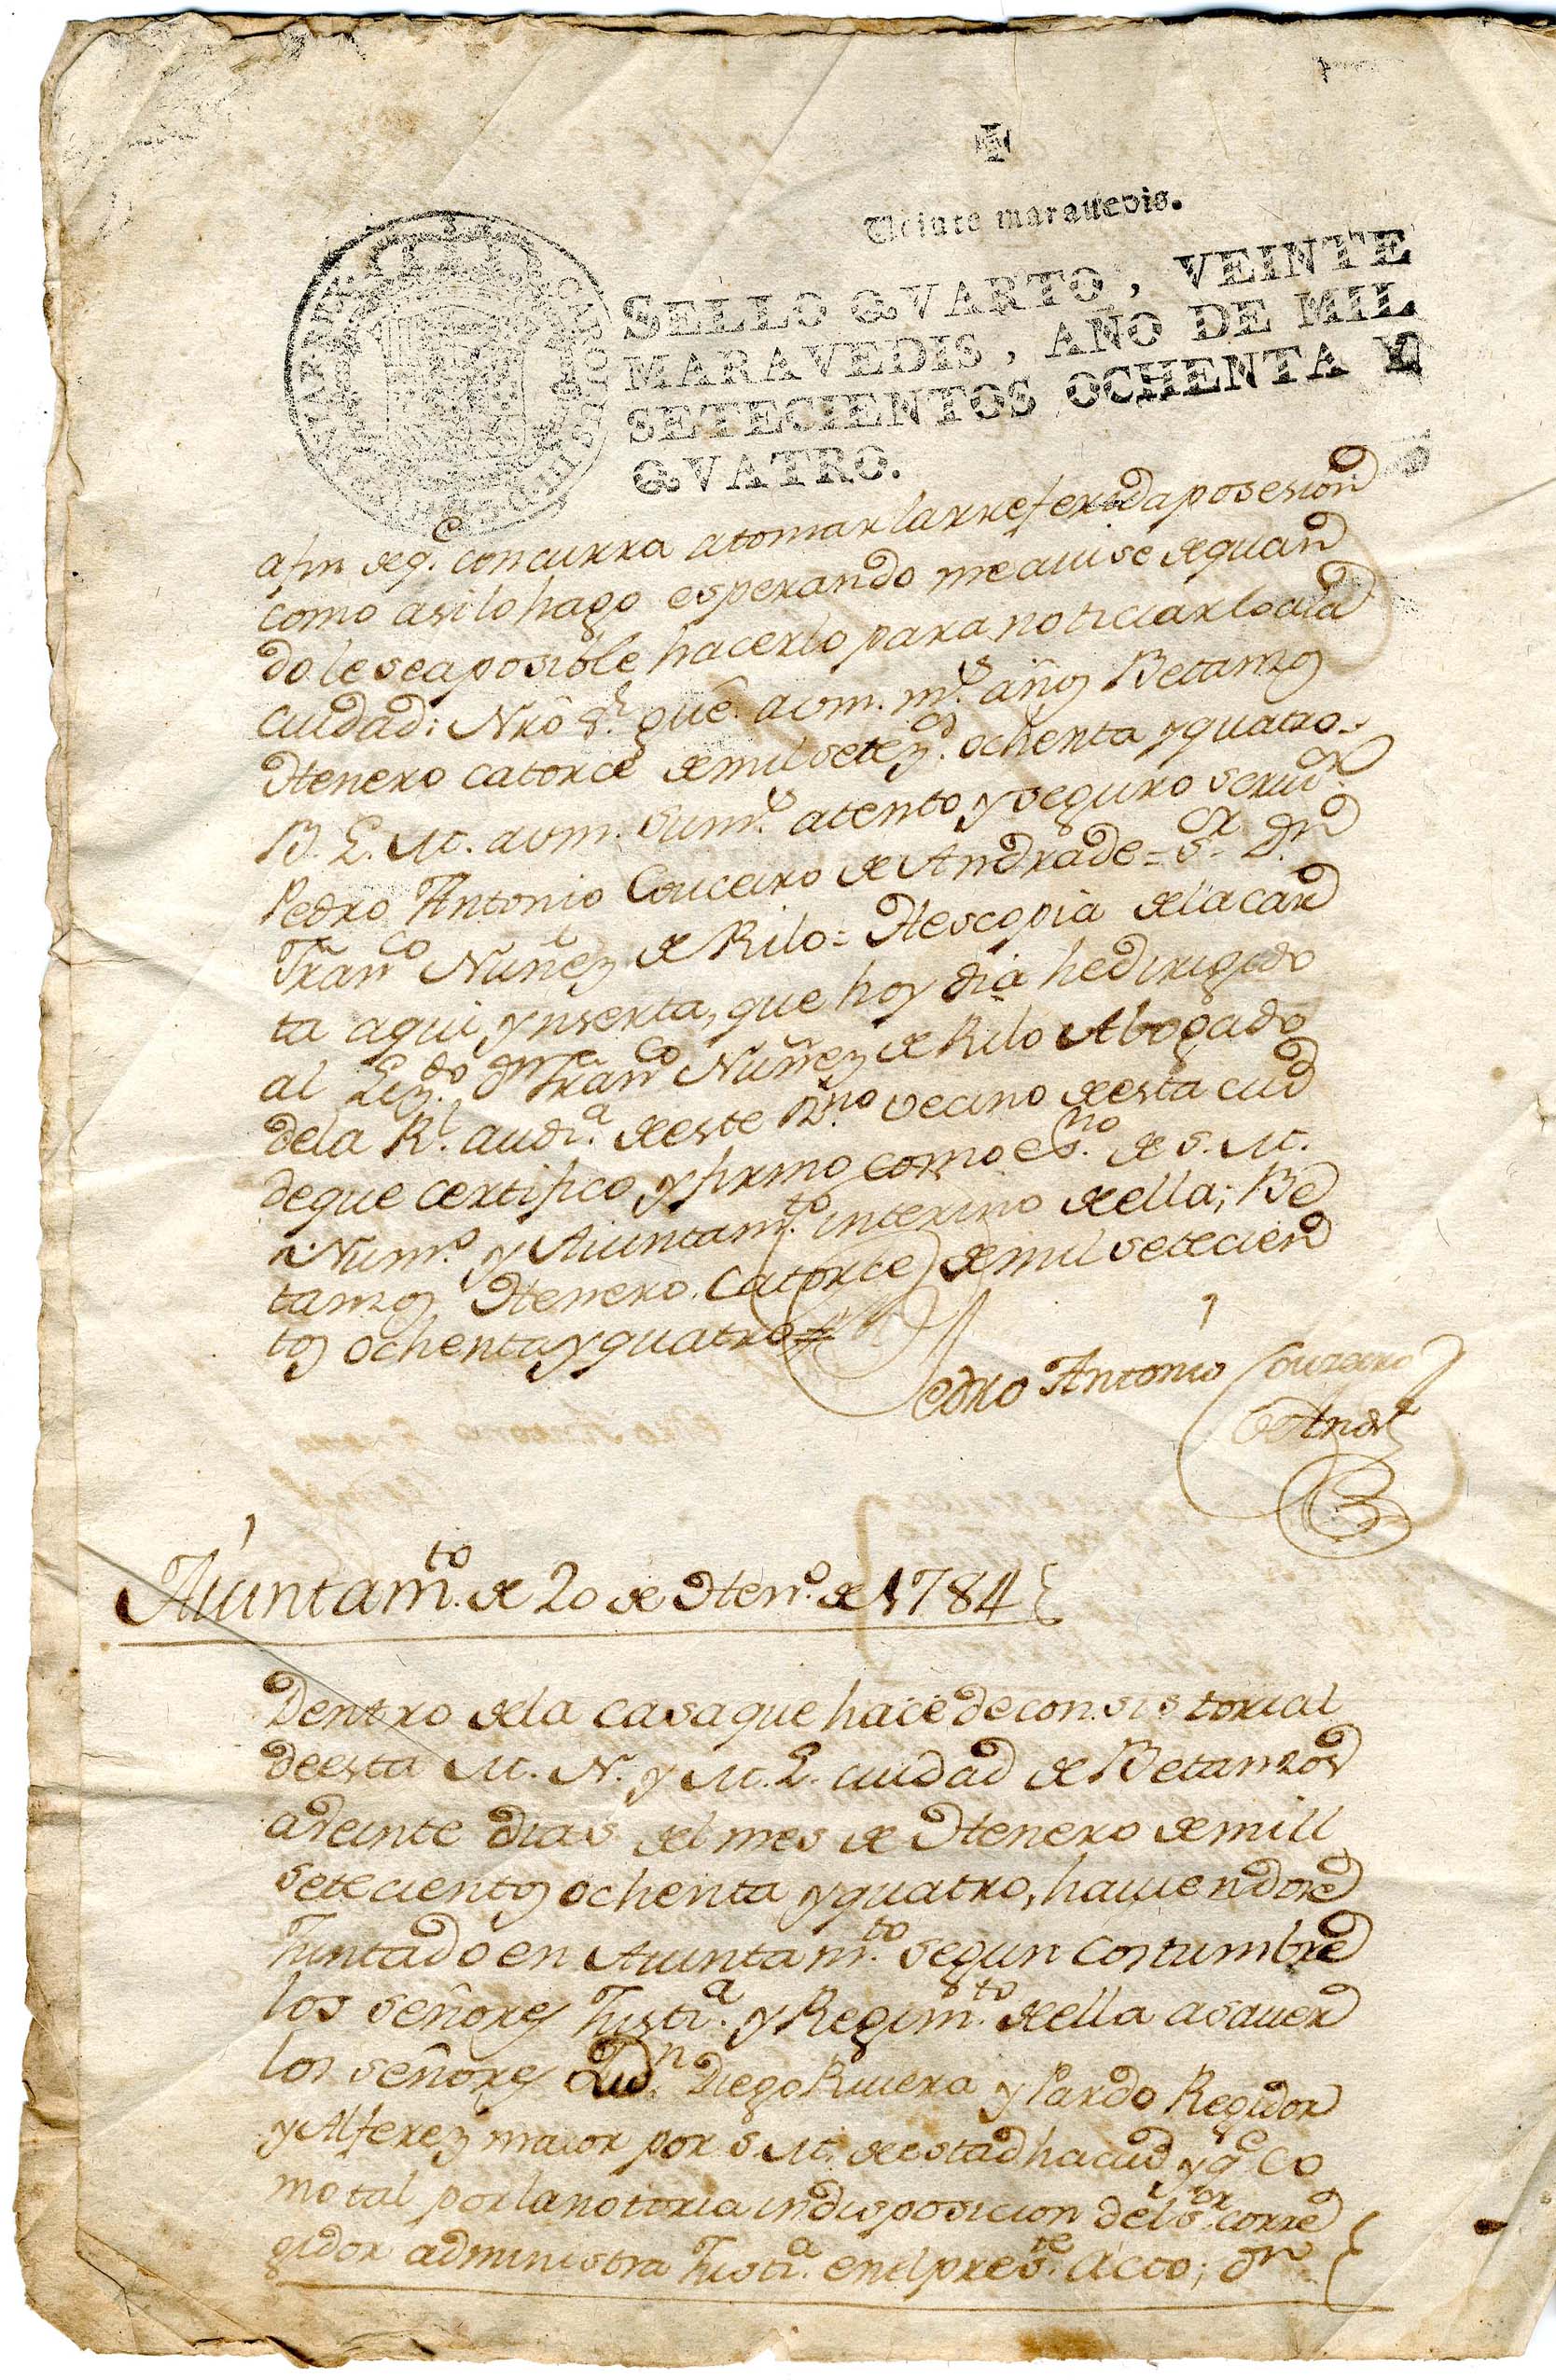 Veinte marauedis.
SELLO QVARTO, VEINTE
MARAVEDIS, AÑO DE MIL
SETECIENTOS OCHENTA Y
QVATRO.
afin deq.e concurra atomar larreferida posesion
como asi lo hago esperando me auise de quan
do le sea posible hacerlo para noticiarlo a la
ciudad: Nrô S.r guê. a vm. m.s añoˢ Betanzoˢ
Henero catorce de mil setez.os ochenta y quatro.
B. L. M. a vm. su m.s atento y seguro seruid.r
Pedro Antonio Couceiro de Andrade = S.or D.n
Fran.co Nuñez de Rilo = Hes copia de la car
ta aqui ynserta, que hoy dia he dirigido
al Liz.do d.n Fran.co Nuñez de Rilo Abogado
de la R.l audi.a de este R.no vecino de esta ciud
de que certifico y firmo como es.no de S. M.
Num.o y Aiuntam.to interino de ella; Be
tanzoˢ Henero catorce de mil setecien
toˢ ochenta y quatro =
Pedro Antonio Couceiro
de Andr.e
Aiuntam.to de 20 de Hen.o de 1784
Dentro de la casa que hace de consistorial
de esta M. N. y M. L. ciudad de Betanzos
a veinte dias del mes de Henero de mill
setecientoˢ ochenta y quatro, hauiendose
Juntado en Aiuntam.to segun costumbre
los señoreˢ Justi.a y Regim.to de ella a sauer
los señoreˢ D.n Diego Riuera y Pardo Regidor
y Alferez maior por S. M. de esta dha ciud y q.e co
mo tal por la notoria indisposicion del S.or corre
gidor administra Justi.a en el pres.te acto; d.n